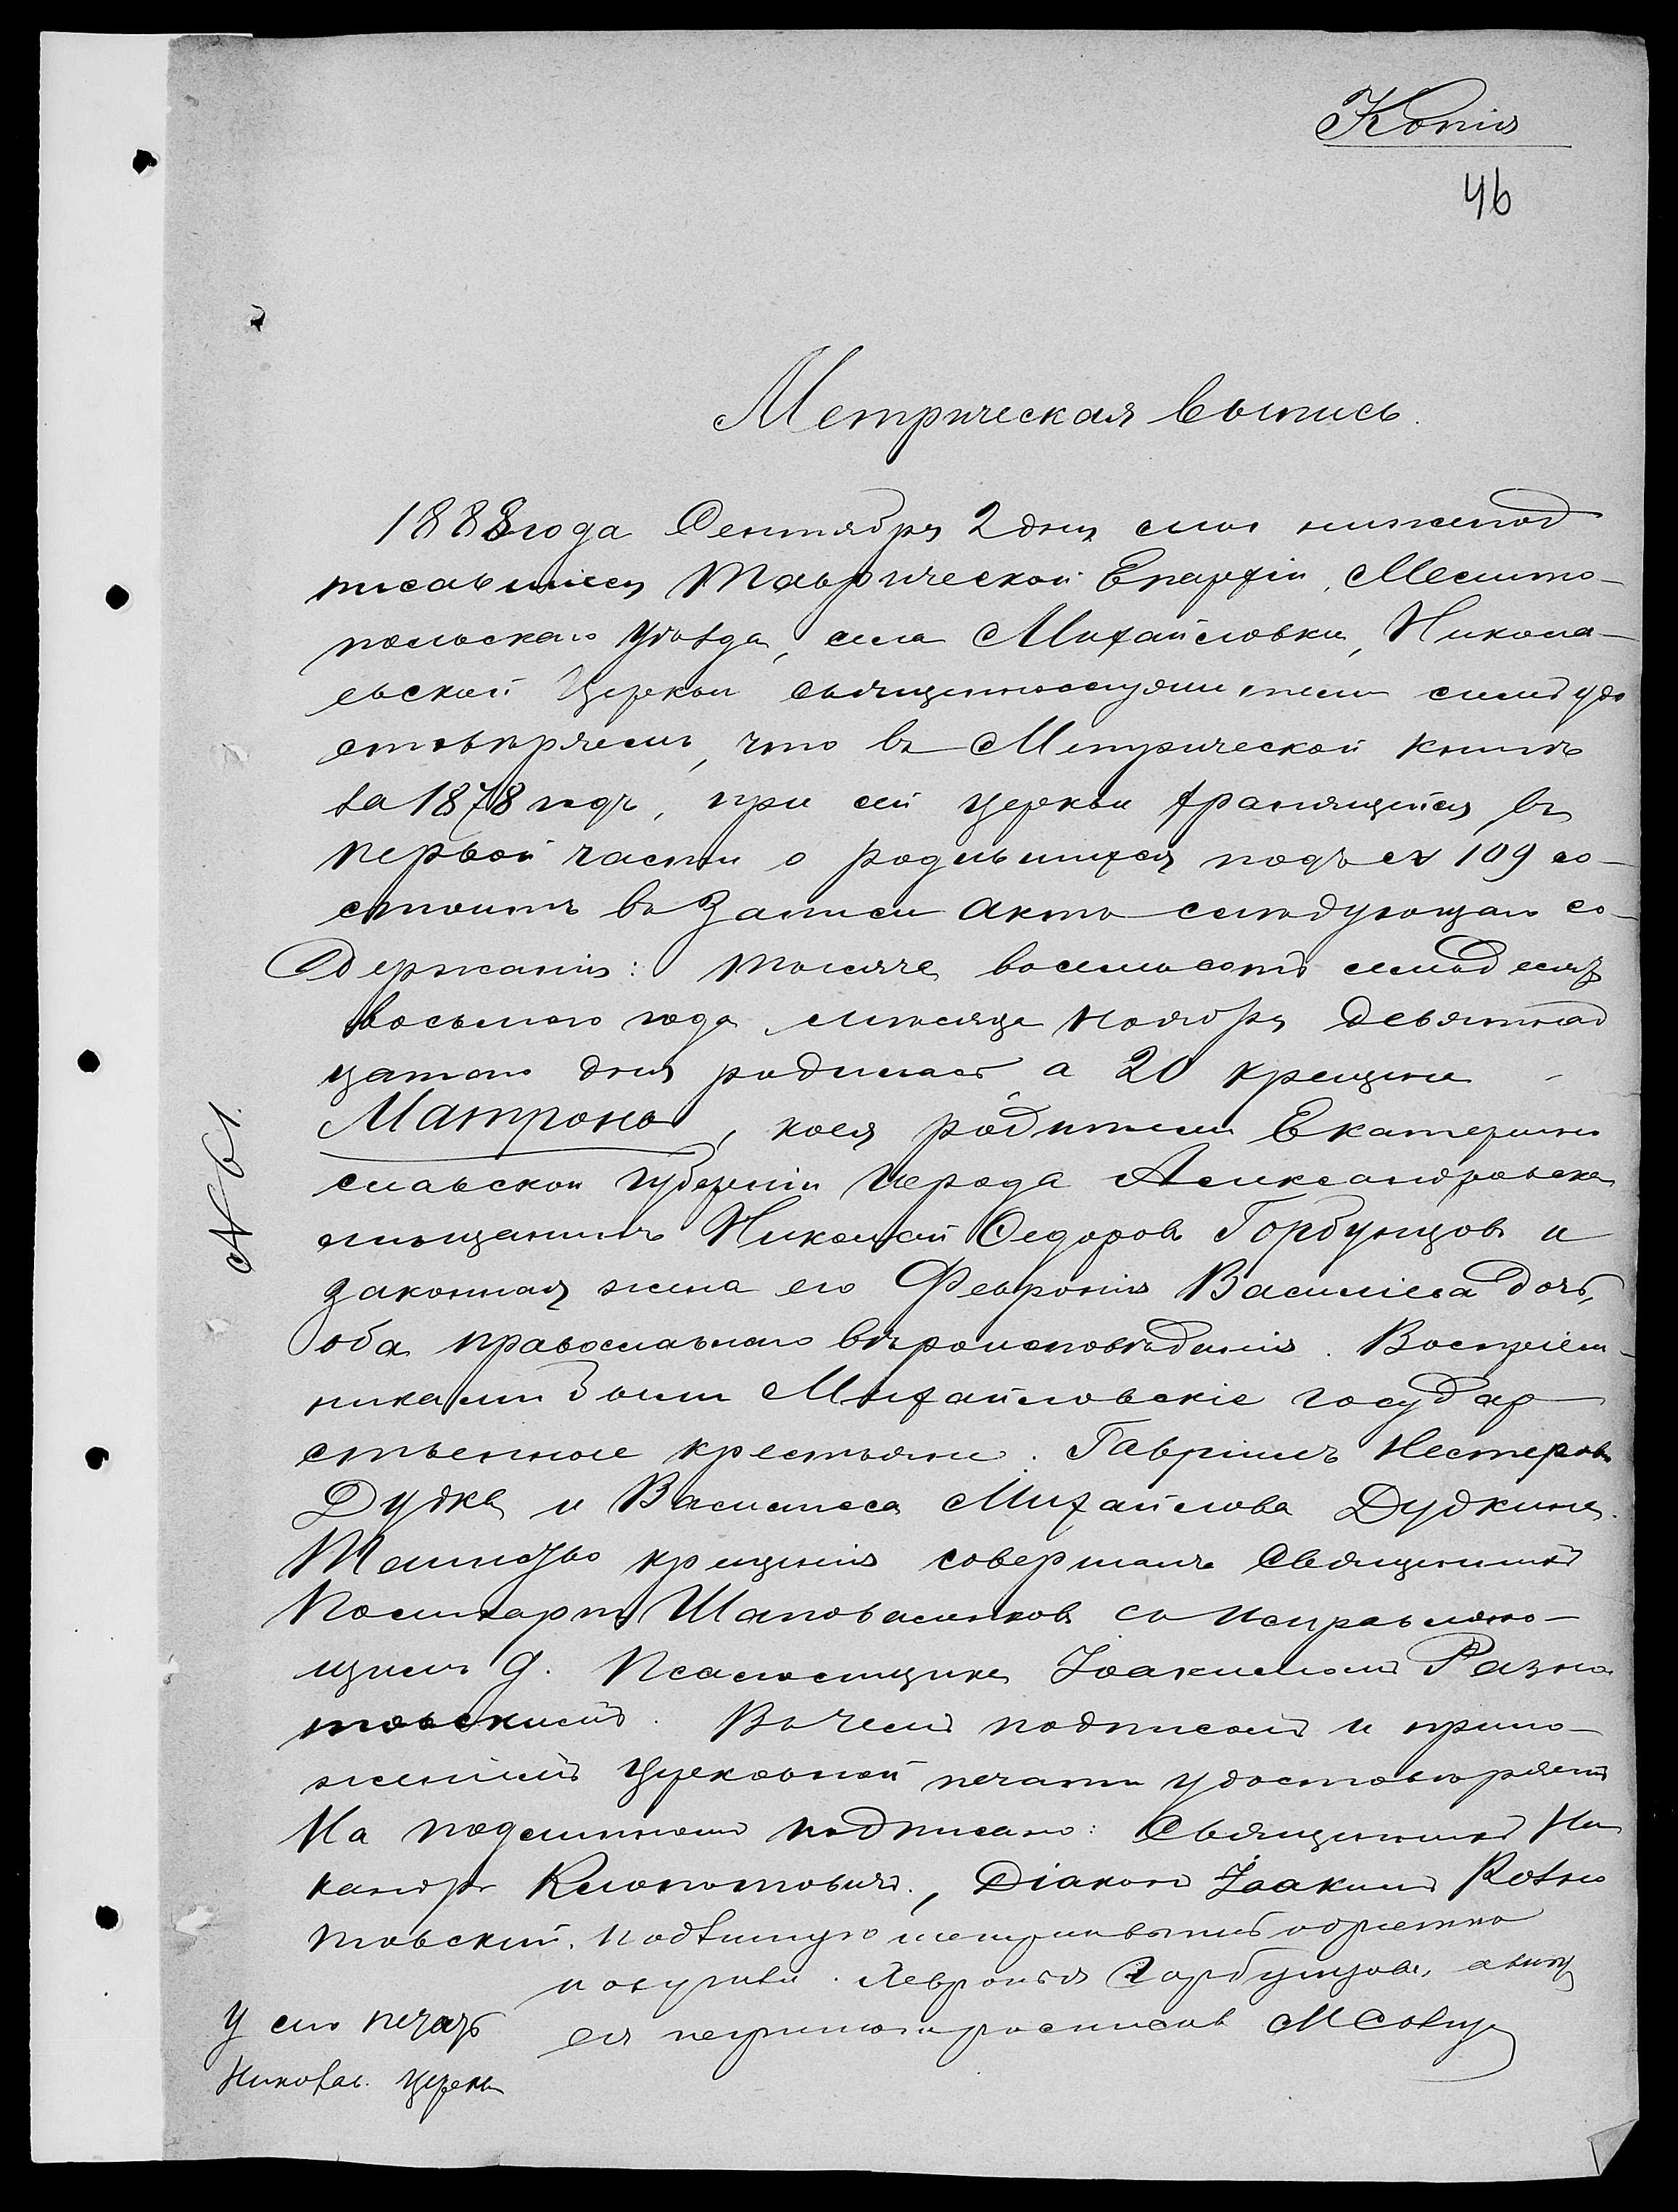 Копія
46
Метрическая выпись.
1888 года Сентября 2 дня мы нижепод
писавшіеся Таврической Епархіи, Мелито-
польскаго уѣзда, села Михайловки, Никола-
евской Церкви священнослужители симъ удо
стовѣряемъ, что въ Метрической книгѣ
за 1878 годъ, при сей церкви хранящейся, въ
первой части о родившихся подъ № 109 со-
стоитъ въ записи актъ слѣдующаго со-
держанія: тысяча восемьсотъ семьдесятъ
восьмого года мѣсяца Ноября девятнад
цатаго дня родилась а 20 крещена -
Матрона, коея родители Екатерино
славской губерніи города Александровска
мѣщанинъ Николай Ѳедоровъ Горбунцовъ и
законная жена его Февронія Васильева дочь,
оба православнаго вѣроисповѣданія. Воспріем-
никами были Михайловскіе государ
ственные крестьяне: Гавріилъ Нестеровъ
Дудка и Василиса Михайлова Дудкина.
Таинство крещенія совершалъ Священникъ
Поликарпъ Шаповаленковъ съ исправляю-
щимъ д. Псаломщика Іоакимомъ Разно
товскимъ. Въ чемъ подписомъ и прило-
женіемъ Церковной печати удостовѣряемъ
На подлинномъ подписано: Священникъ Ни
каноръ Клопотовичъ, Діаконъ Іоакимъ Розно
товскій. Подлинную метрик выпись обратно
получила. Хевронья Горбунцова, а внизу
ея неграмот росписов М
У сего печать
Никола. Церкви
№ 61.